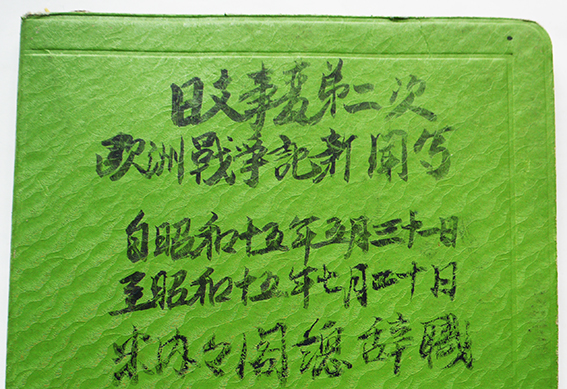 日支事変第二次
欧洲戰争記新聞写
自昭和十五年五月三十一日
至昭和十五年七月二十日
米内々閣總辞職